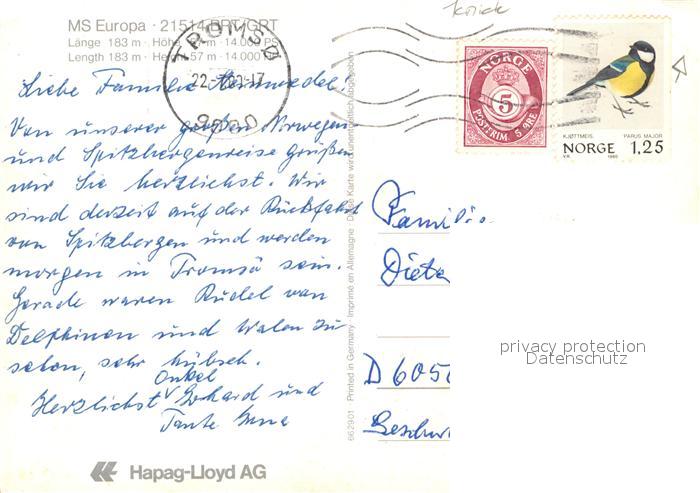 knick
MS Europa · 21514 BRT/GRT
Länge 183 m · Höhe 57 m · 14.000 PS
Length 183 m · Height 57 m · 14.000
TROMSØ
22.-17
9500
NORGE
5
POSTFRIM. 5 ØRE
KJØTTMEIS. PARUS MAJOR
NORGE 1,25
V.R. 1980
Liebe Familie
Von unserer großen Norwegen
und Spitzbergenreise grüßen
wir Sie herzlichst. Wir
sind derzeit auf der Rückfahrt
von Spitzbergen und werden
morgen in Tromsö sein.
Gerade waren Rudel von
Delphinen und Walen zu
sehen, sehr hübsch.
Onkel
Herzlichst Gerhard und
Tante
Familie
Diete
D 605
662901 · Printed in Germany · Imprimé en Allemagne · Diese Karte wird unentgeltlich abgegeben
privacy protection
Datenschutz
Hapag-Lloyd AG